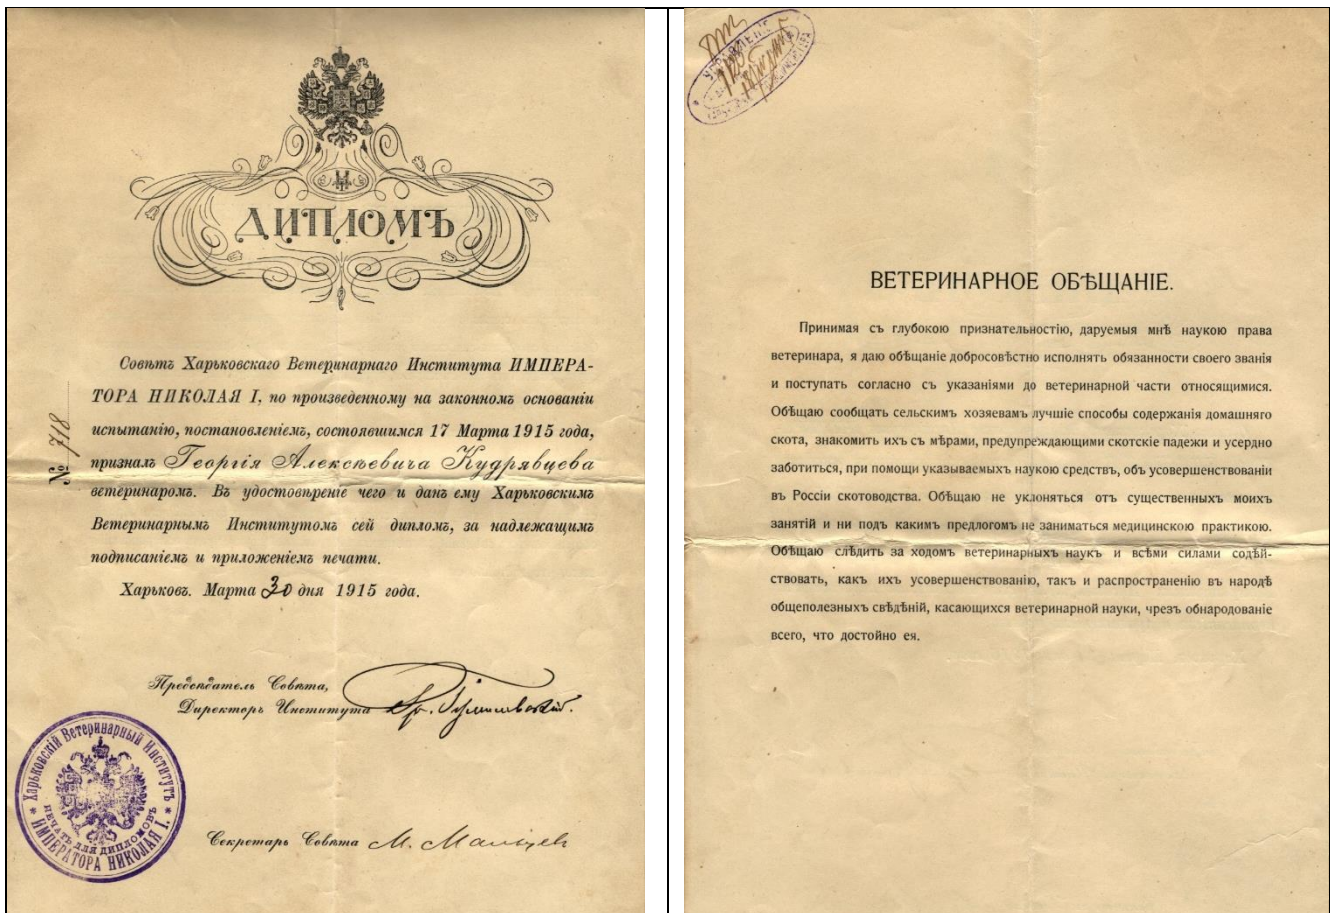 ДИПЛОМЪ
Совѣтъ Харьковскаго Ветеринарнаго Института ИМПЕРА-
ТОРА НИКОЛАЯ I, по произведенному на законномъ основаніи
испытанію, постановленіемъ, состоявшимся 17 Марта 1915 года,
призналъ Георгія Алексѣевича Кудрявцева
ветеринаромъ. Въ удостовѣреніе чего и данъ ему Харьковскимъ
Ветеринарнымъ Институтомъ сей дипломъ, за надлежащимъ
подписаніемъ и приложеніемъ печати.
Харьковъ. Марта 30 дня 1915 года.
№ 718
Предсѣдатель Совѣта,
Директоръ Института
Харьковскій Ветеринарный Институтъ
ИМПЕРАТОРА НИКОЛАЯ I.
ПЕЧАТЬ ДЛЯ ДИПЛОМОВЪ
Секретарь Совѣта М. Мальцев
УПРАВЛЕНІЕ
ВЕТЕРИНАРНОЕ ОБѢЩАНІЕ.
Принимая съ глубокою признательностію, даруемыя мнѣ наукою права
ветеринара, я даю обѣщаніе добросовѣстно исполнять обязанности своего званія
и поступать согласно съ указаніями до ветеринарной части относящимися.
Обѣщаю сообщать сельскимъ хозяевамъ лучшіе способы содержанія домашняго
скота, знакомить ихъ съ мѣрами, предупреждающими скотскіе падежи и усердно
заботиться, при помощи указываемыхъ наукою средствъ, объ усовершенствованіи
въ Россіи скотоводства. Обѣщаю не уклоняться отъ существенныхъ моихъ
занятій и ни подъ какимъ предлогомъ не заниматься медицинскою практикою.
Обѣщаю слѣдить за ходомъ ветеринарныхъ наукъ и всѣми силами содѣй-
ствовать, какъ ихъ усовершенствованію, такъ и распространенію въ народѣ
общеполезныхъ свѣдѣній, касающихся ветеринарной науки, чрезъ обнародованіе
всего, что достойно ея.